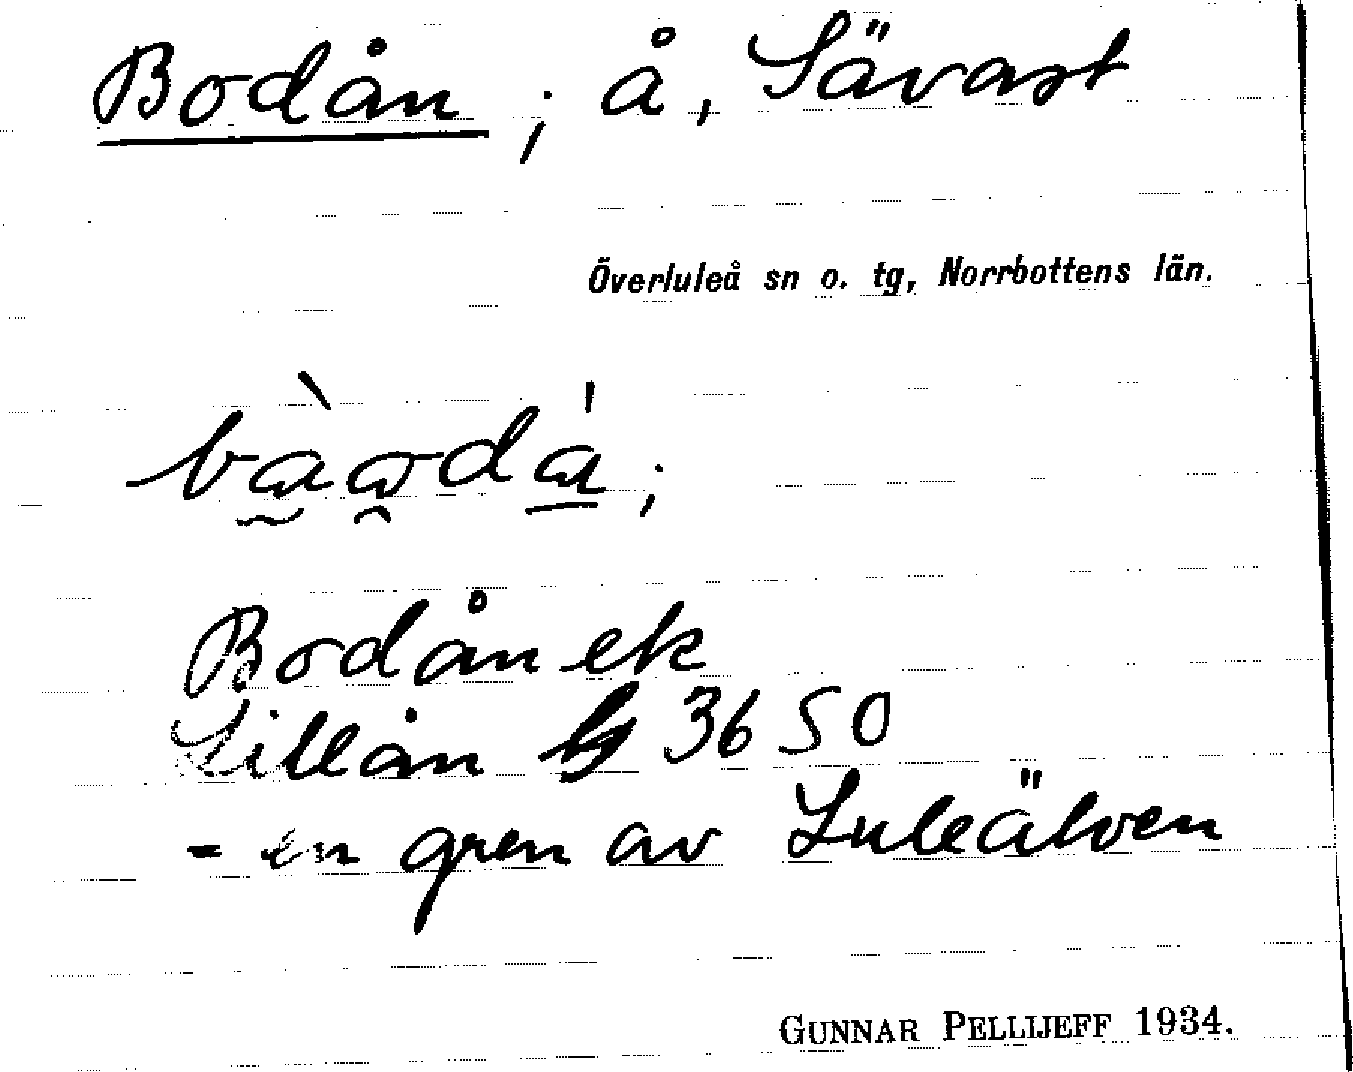 Bodån ; å, Sävast
Överluleå sn o. tg, Norrbottens län.
Bodån ek
Lillån 3650
- en gren av Luleälven
GUNNAR PELLIJEFF 1934.